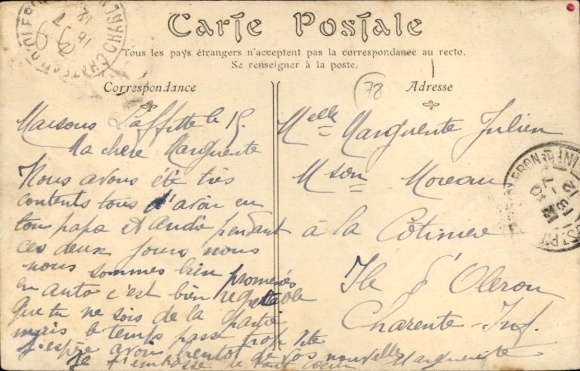 Carte Postale
Tous les pays étrangers n'acceptent pas la correspondance au recto.
Se renseigner à la poste.
Correspondance
Adresse
78
Maisons Laffitte le 15
Ma chère Marguerite
Nous avons été très
contents tous d'avoir eu
ton papa et André pendant
ces deux jours nous
nous sommes bien promenés
en auto c'est bien regrettable
que tu ne sois de la partie
mais le temps passe trop vite
J'espère avoir bientôt de vos nouvelles
Je t'embrasse de tout coeur Marguerite
Melle Marguerite Julien
Mson Moreau
à la Côtinière
Ile d'Oleron
Charente-Inf.